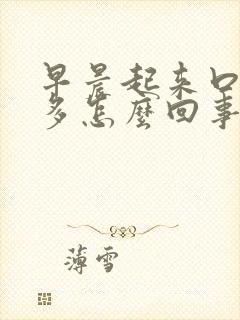 早晨起来口
多怎麼回事
薄雪